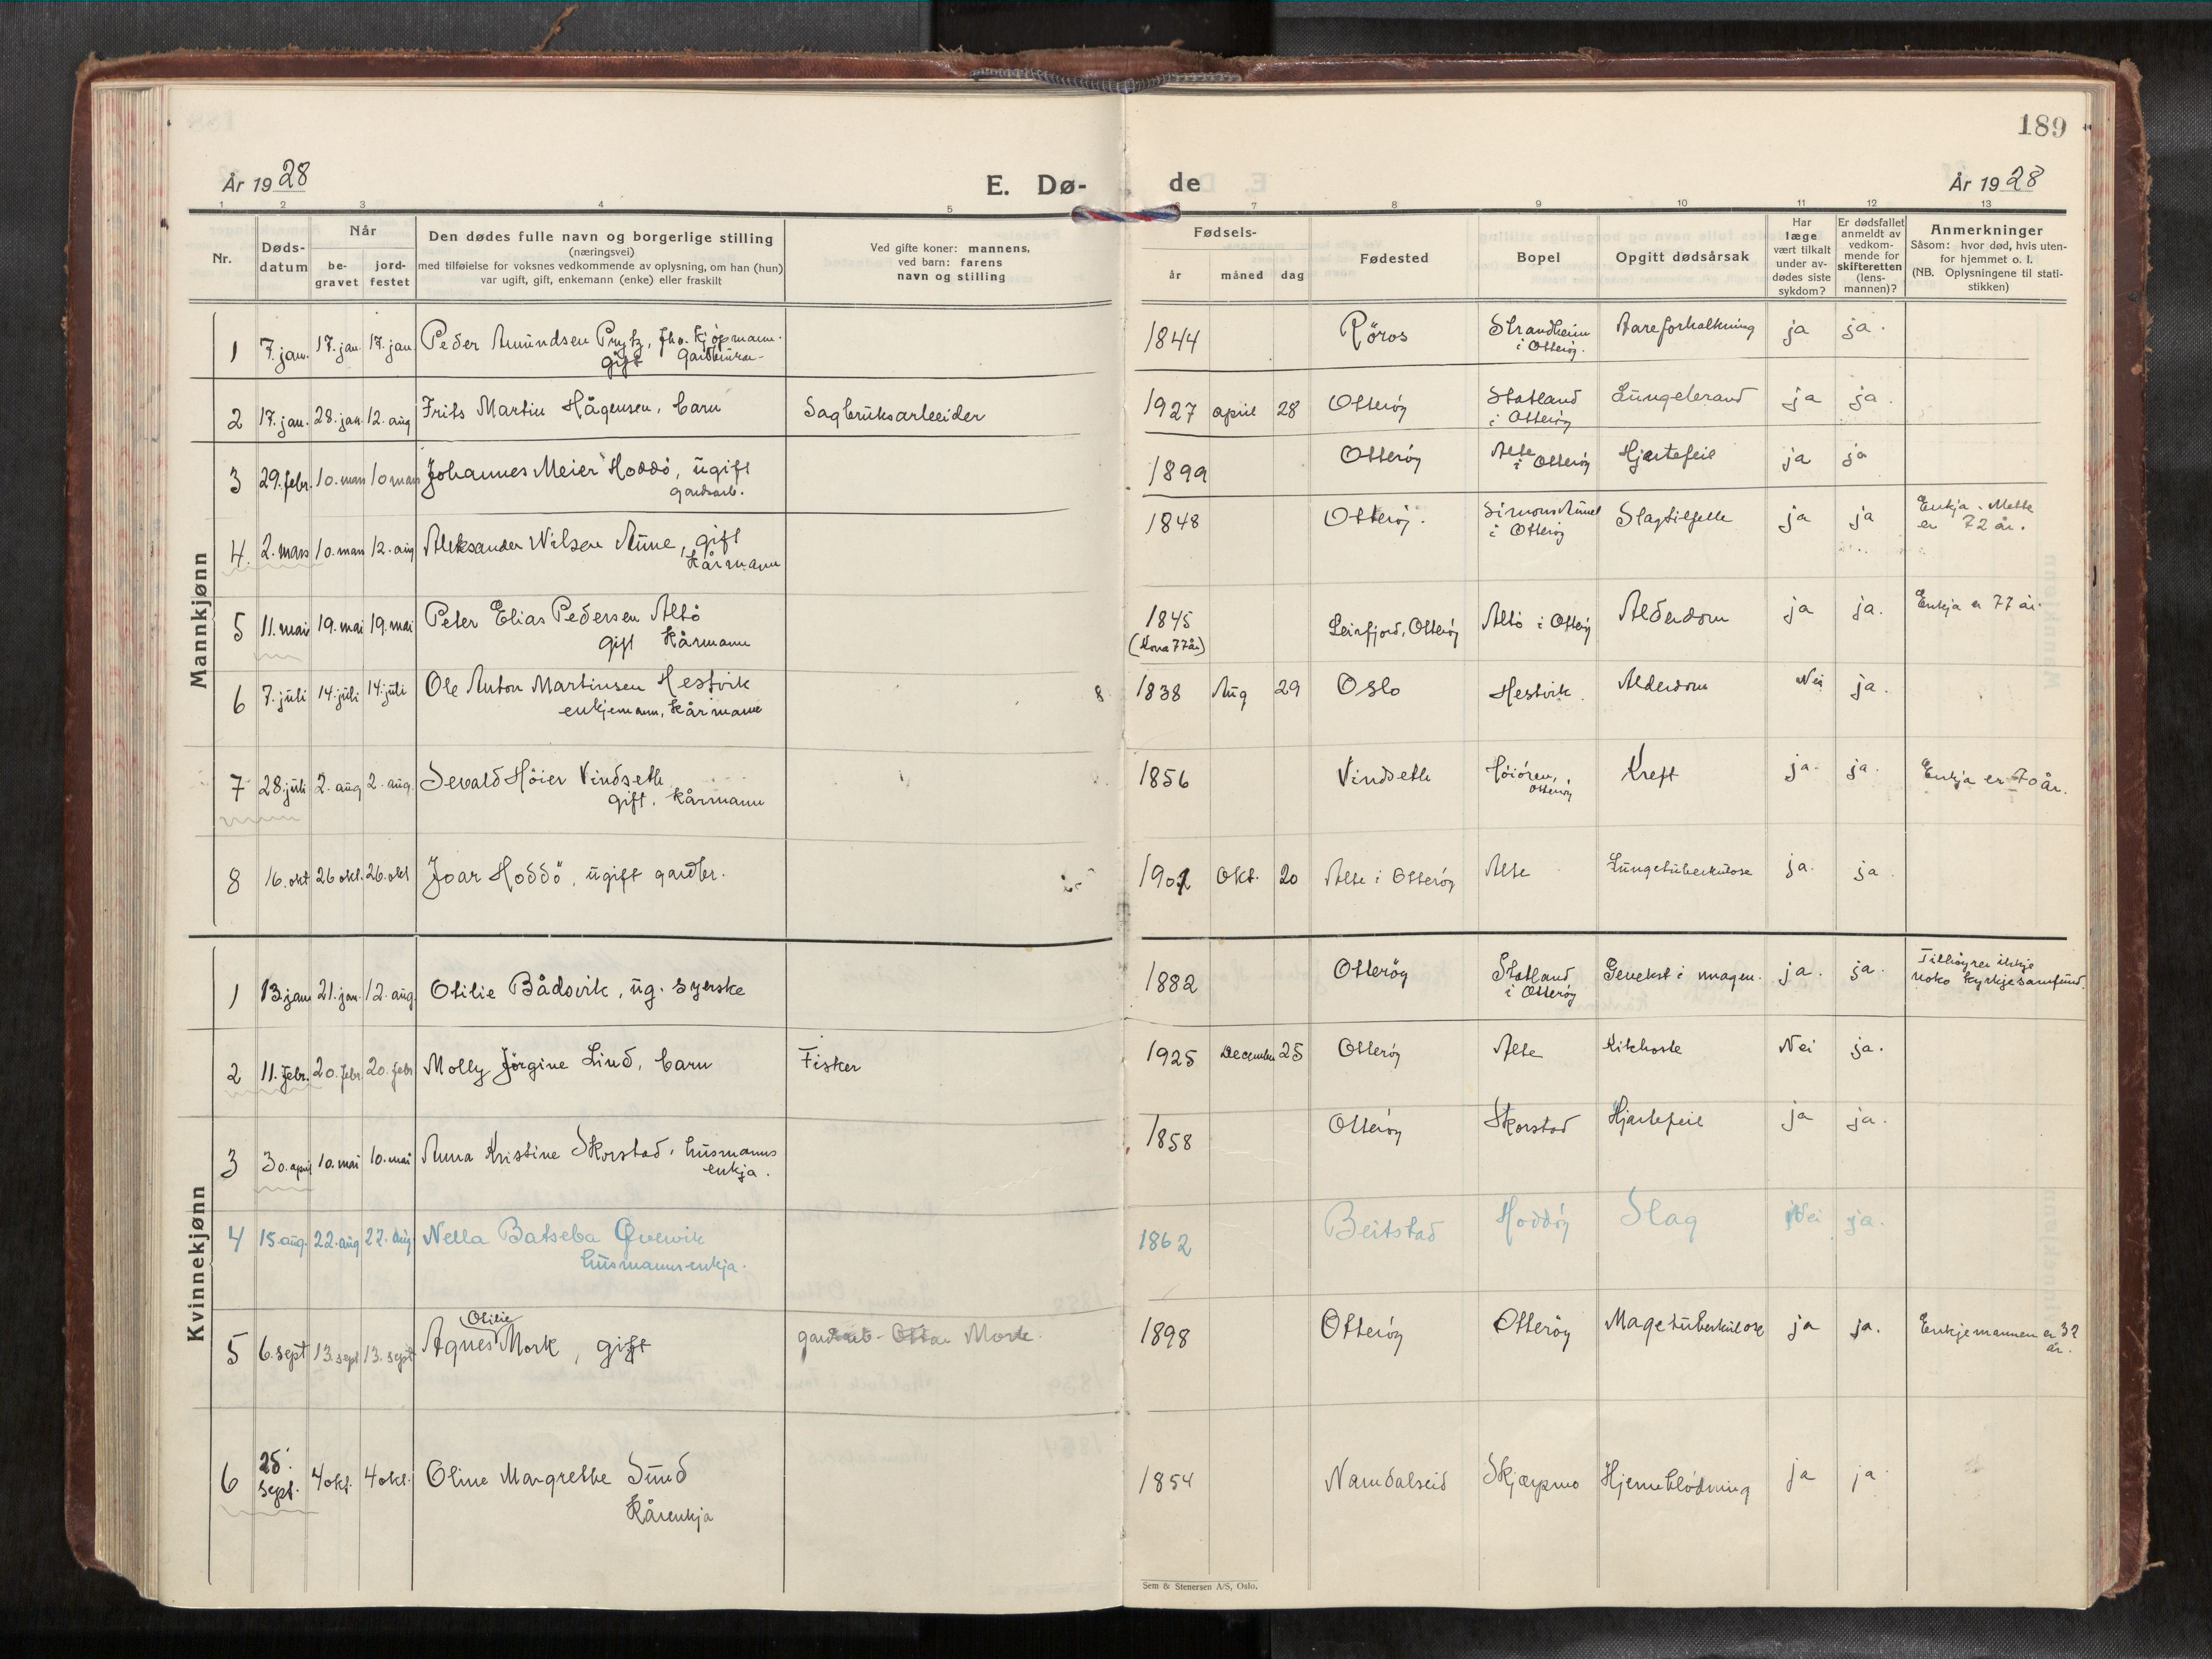 189
År 1928
E. Dø-
de
År 1928
1 2 3 4 5 6 7 8 9 10 11 12 13
Nr.
Døds-
datum
Når
be-
gravet
jord-
festet
Den dødes fulle navn og borgerlige stilling
(næringsvei)
med tilføielse for voksnes vedkommende av oplysning, om han (hun)
var ugift, gift, enkemann (enke) eller fraskilt
Ved gifte koner: mannens,
ved barn: farens
navn og stilling
Fødsels-
år måned dag
Fødested
Bopel
Opgitt dødsårsak
Har
læge
vært tilkalt
under av-
dødes siste
sykdom?
Er dødsfallet
anmeldt av
vedkom-
mende for
skifteretten
(lens-
mannen)?
Anmerkninger
Såsom: hvor død, hvis uten-
for hjemmet o. l.
(NB. Oplysningene til stati-
stikken)
Mannkjønn
1 7. jan. 17. jan 17. jan Peder Amundsen Prytz, fhv. kjöpmann. 1844 Röros Strandheim Aareforkalkning ja ja.
gift
i Otteröy.
2 17. jan. 28. jan. 12. aug Frits Martin Hågensen, barn Sagbruksarbeider 1927 april 28 Otteröy Statland Lungebrand ja ja.
i Otteröy
3 29. febr. 10. mars 10 mars Johannes Meier Hoddö, ugift 1899 Otteröy Alte i Otteröy Hjertefeil ja ja
gardsarb.
4. 2. mars 10. mars 12. aug Aleksander Nilsen Aune, gift 1848 Otteröy. i Otteröy Slagtilfelle ja ja Enkja. Mette
kårmann
er 72 år.
5 11. mai 19. mai 19. mai Peter Elias Pedersen Altö 1845 Leirfjord, Otteröy Altö i Otteröy Alderdom ja ja. Enkja er 77 år.
gift kårmann
(Kona 77 år)
6 7. juli 14. juli 14. juli Ole Anton Martinsen Hestvik 8 1838 Aug 29 Oslo Hestvik. Alderdom Nei ja.
enkjemann, kårmann
7 28. juli 2. aug 2. aug. Sevald Höier Vindseth 1856 Vindseth Höiören, Kreft ja. ja. Enkja er 70 år.
gift. kårmann
Otteröy
8 16. okt 26 okt. 26. okt Joar Hoddö, ugift gardbr. 1901 Okt. 20 Alte i Otteröy Alte Lungetuberkulose ja. ja.
Kvinnekjønn
1 13 jan 21. jan. 12. aug. Otilie Bådsvik, ug. syerske 1882 Otteröy Statland Gevekst i magen. ja. ja. Tilhöyrer ikkje
i Otteröy
noko kyrkjesamfund.
2 11. febr. 20. febr. 20. febr Molly Jörgine Lind, barn Fisker 1925 December 25 Otteröy Alte Kikhoste Nei ja.
3 30. april 10. mai 10. mai Anna Kristine Skorstad, husmanns 1858 Otteröy Skorstad Hjertefeil ja ja.
enkja.
4 15. aug. 22. aug 22. aug Nella Batseba Qvervik 1862 Beitstad Hoddöy Slag Nei ja.
husmanns-enkja.
Otilie
5 6. sept 13. sept 13. sept Agnes Mork, gift gardsarb. Ottar Mork. 1898 Otteröy Otteröy Magetuberkulose ja ja. Enkjemannen er 32
år.
6 25. sept. 4 okt. 4 okt. Oline Margrethe Sund 1854 Namdalseid Skjærpmo Hjerneblödning ja ja.
Kårenkja
Sem & Stenersen A/S, Oslo.